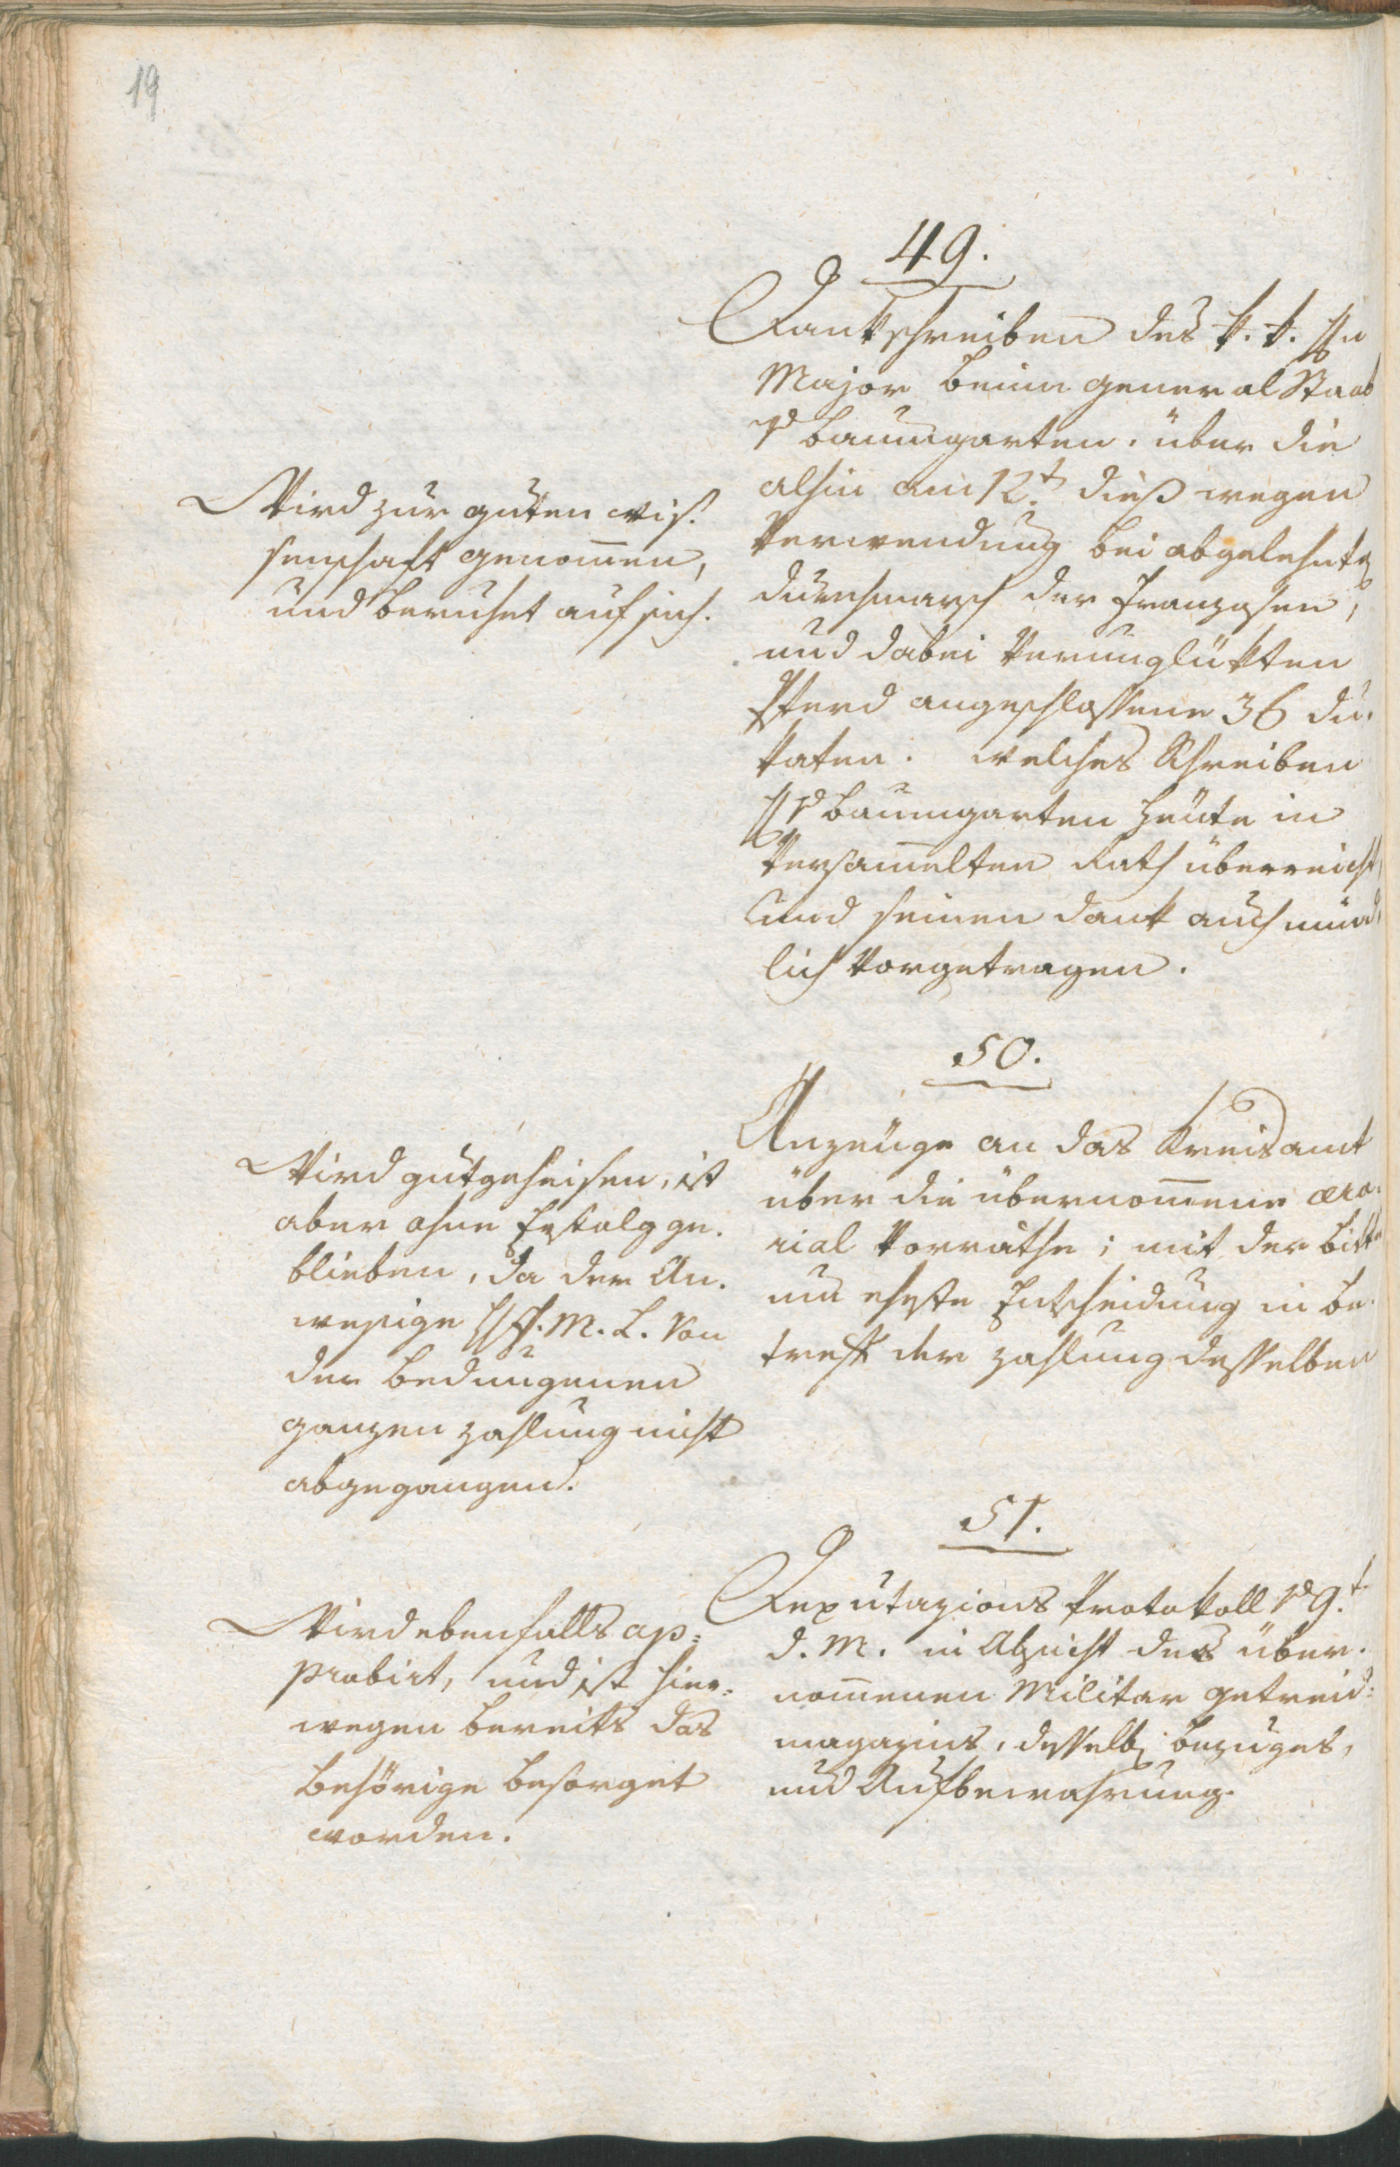 19
49.
Dankschreiben des k. k. H.
Major beim General Staab
v Baumgarten. über die
alhin am 12t. dieß wegen
Verwendung bei abgelehnte
durchmarsch der Franzosen,
und dabei verunglükten
Pferd angeschlossene 36 Du-
katen. welches Schreiben
H v Baumgarten heute in
versam̄elten Rath überreicht,
und seinen dank auch münd-
lich vorgetragen.
Wird zur guten wis-
senschaft genom̄en,
und beruhet auf sich.
50.
Anzeuge an das Kreisamt
über die übernom̄ene aera-
rial Vorräthe; mit der bitte
um eheste Entscheidung in be-
treff der zahlung desselben
Wird gutgeheisen, ist
aber ohne Erfolg ge-
blieben, da der An-
wesige H F. M. L. von
der bedungenen
ganzen zahlung nicht
abgegangen.
51.
Deputazions Protokoll v 9t.
d. M. in Absicht des über-
nom̄enen Militar getreid-
magazins, desselb bezuges,
und Aufbewahrung.
Wird ebenfalls ap-
probirt, und ist hier-
wegen bereits das
behörige besorget
worden.